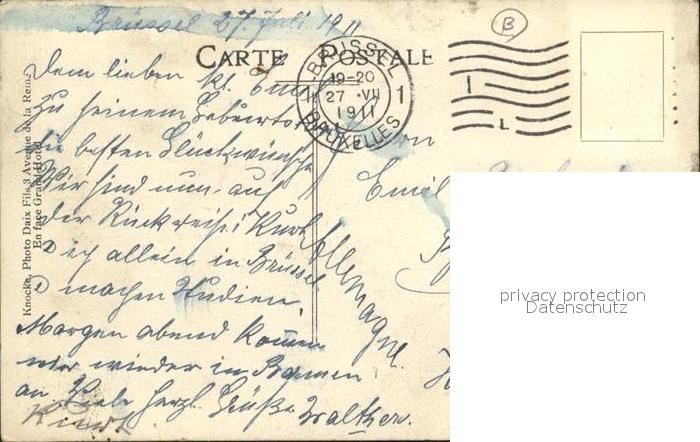 Brüssel 27. Juli 1911
CARTE POSTALE
BRUSSEL
19-20
27 VII
1911
BRUXELLES
1 1
B
L
Dem lieben kl. Emil
zu seinem Geburtstag
die besten Glückwünsche
Wir sind nun auf
der Rückreise, Kurt
& ich allein in Brüssel
& machen Studien
Morgen abend kommen
wir wieder in Barmen
an. Viele herzl. Grüße Walther.
Kurt
Emil
Allemagne.
Knocke, Photo Daix Fils, 3 Avenue de la Reine
En face Grand Hotel
privacy protection
Datenschutz